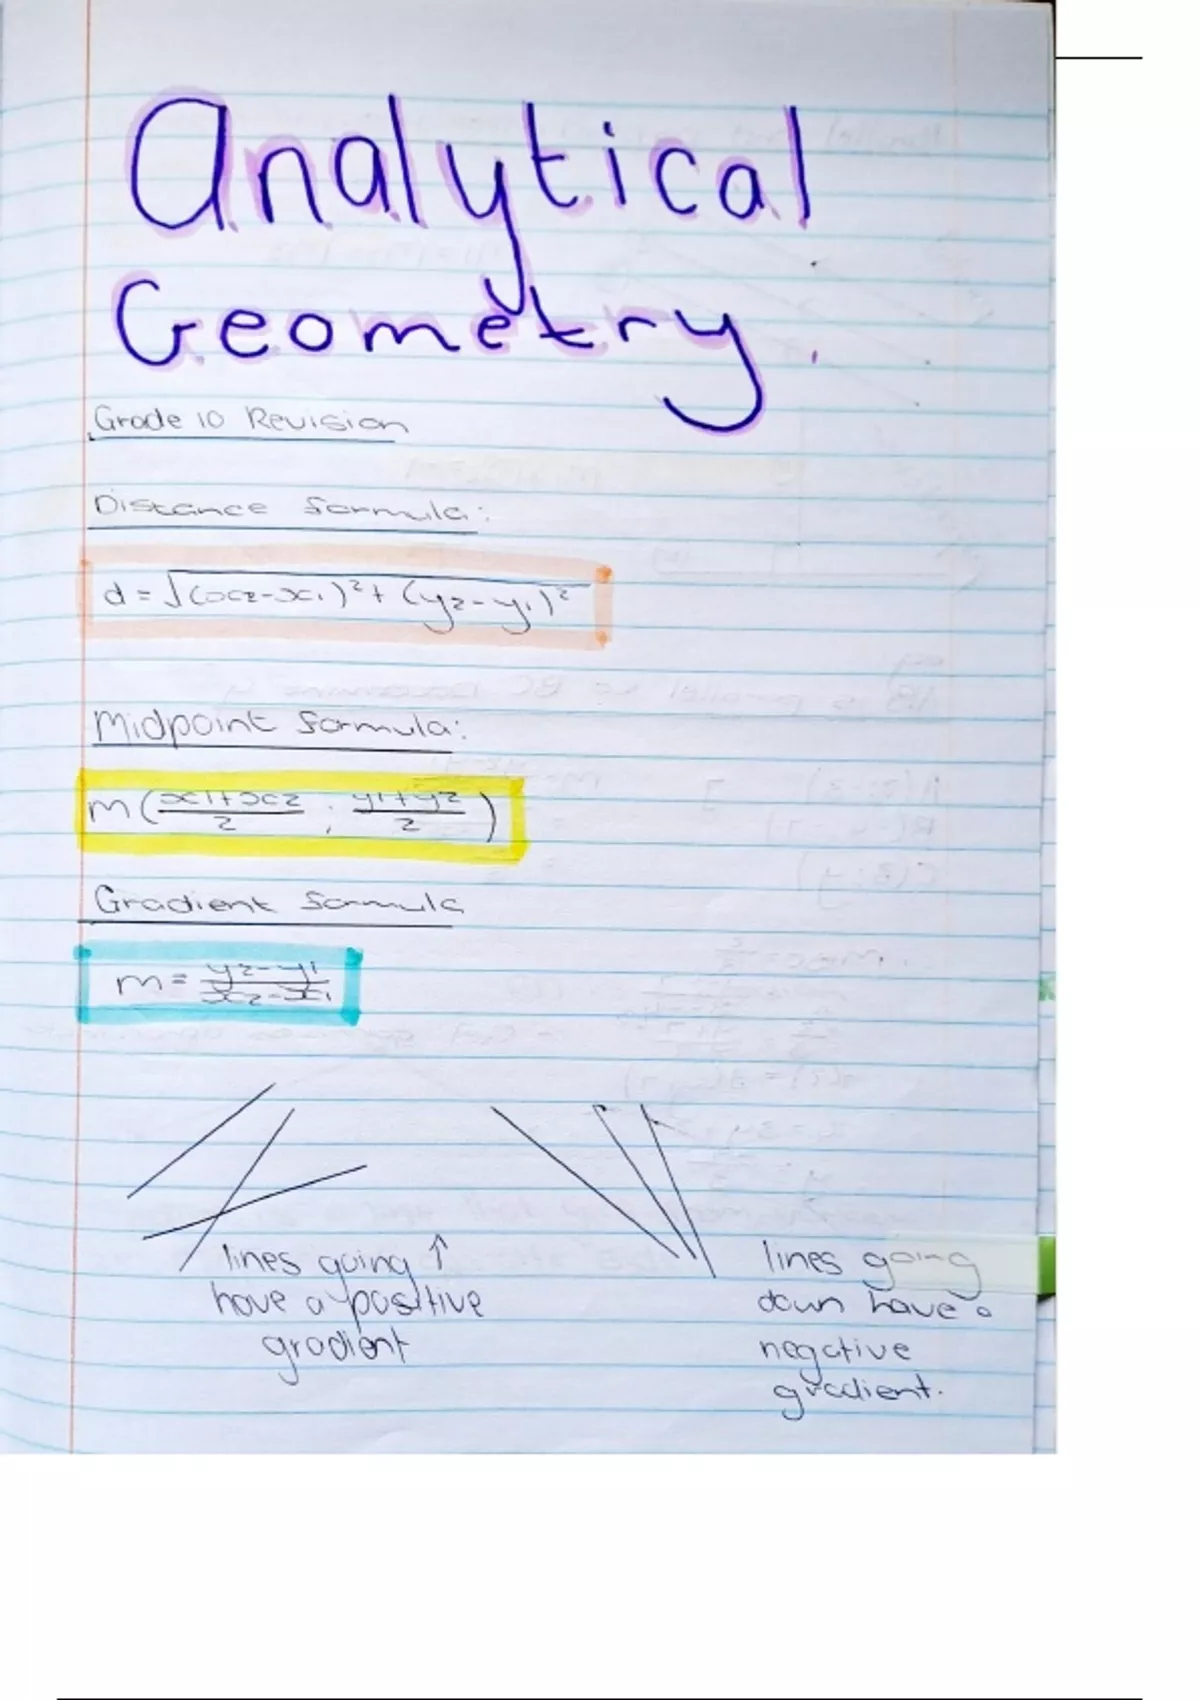 Analytical
Geometry.
Grade 10 Revision
Distance formula:
d = √(x2-x1)²+ (y2-y1)²
Midpoint formula:
m(x1+x2/2 ; y1+y2/2)
Gradient formula
m = y2-y1/x2-x1
lines going ↑
have a positive
gradient
lines going
down have a
negative
gradient.